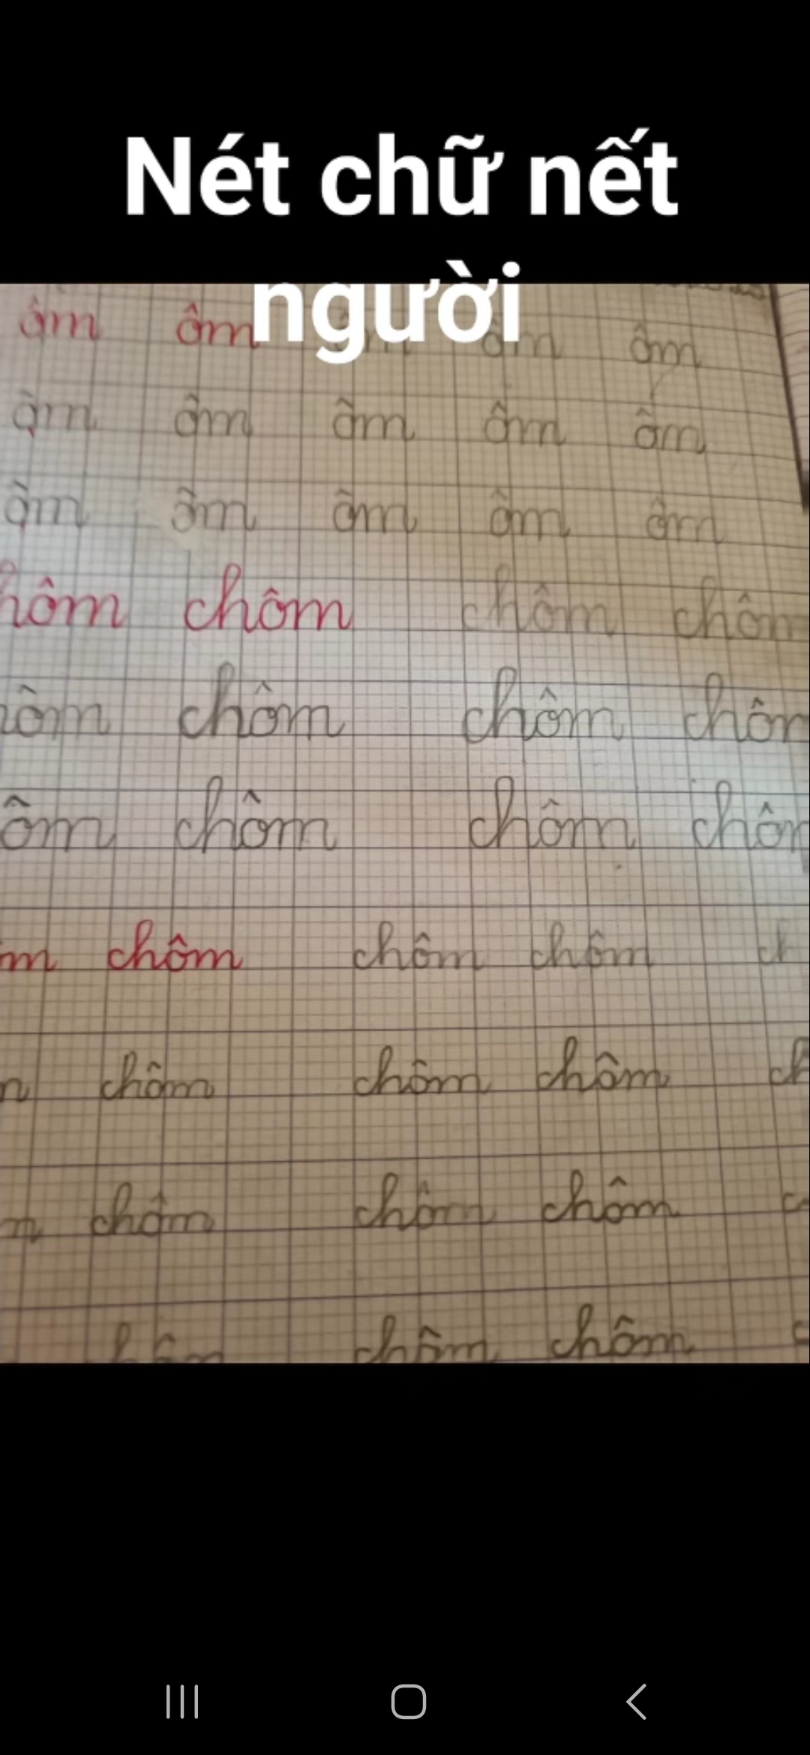 Nét chữ nết
người
ôm ôm ôm ôm
ôm ôm ôm ôm ôm
ôm ôm ôm ôm ôm
hôm chôm chôm chôm
chôm chôm
ôm chôm chôm
m chôm chôm chôm ch
chôm chôm chôm ch
chôm chôm chôm c
chôm chôm